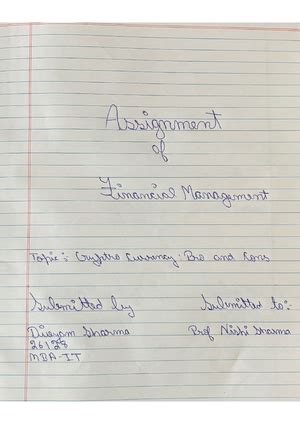 Assignment
of
Financial Management
Topic : Crypto Currency : Pro and Cons
Submitted by
Submitted to :-
Divyam Sharma
Prof Nishi Sharma
26128
MBA-IT